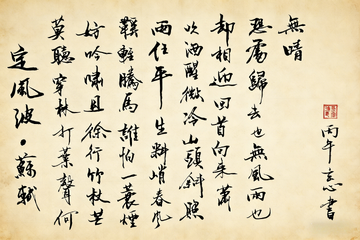 定風波·蘇軾
莫聽穿林打葉聲何
妨吟嘯且徐行竹杖芒
鞵輕勝馬誰怕一蓑煙
雨任平生料峭春風
吹酒醒微冷山頭斜照
却相迎回首向來蕭
瑟處歸去也無風雨也
無晴
丙午書